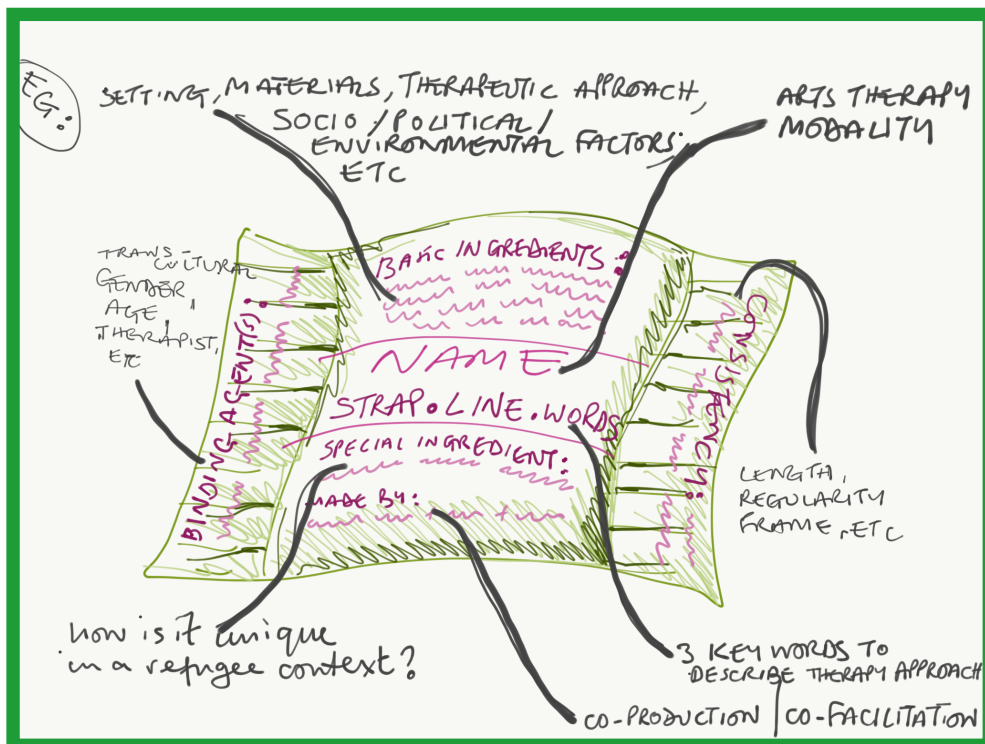 EG:
SETTING, MATERIALS, THERAPEUTIC APPROACH,
SOCIO / POLITICAL /
ENVIRONMENTAL FACTORS,
ETC
ARTS THERAPY
MODALITY
TRANS-
CULTURAL
GENDER,
AGE,
THERAPIST,
ETC
BINDING AGENT(S):
BASIC INGREDIENTS:
NAME
STRAP.LINE.WORDS
SPECIAL INGREDIENT:
MADE BY:
CONSISTENCY:
LENGTH,
REGULARITY
FRAME, ETC
how is it unique
in a refugee context?
3 KEY WORDS TO
DESCRIBE THERAPY APPROACH
CO-PRODUCTION | CO-FACILITATION